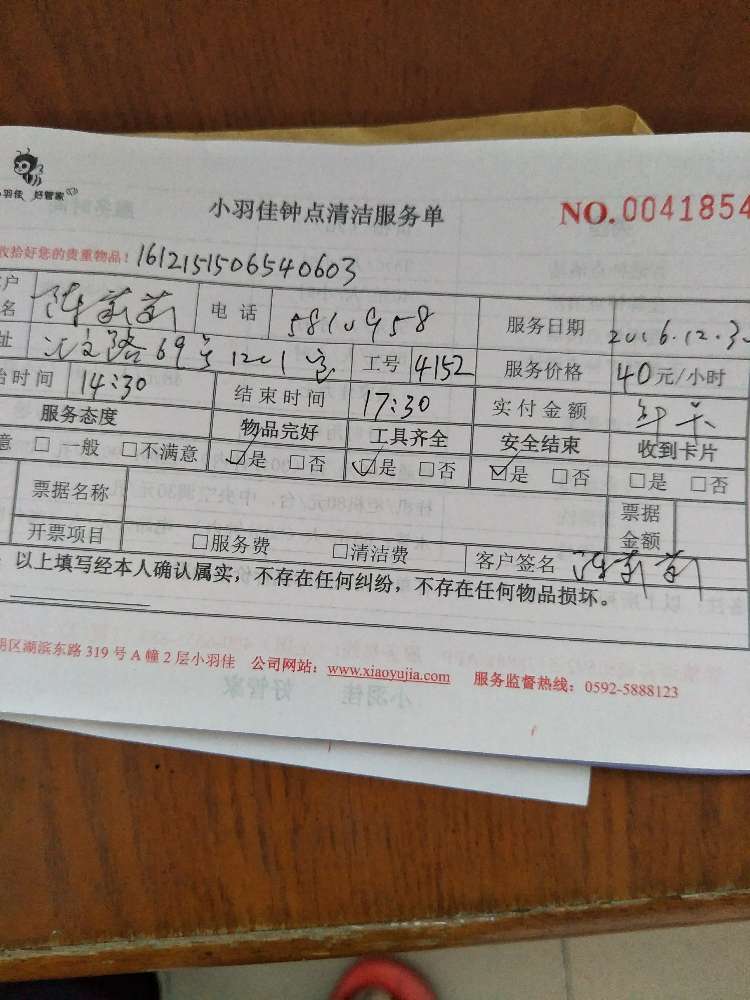 小羽佳 好管家
小羽佳钟点清洁服务单
NO.0041854
收拾好您的贵重物品! 1612151506540603
客户
名
电话 5810958
服务日期 2016.12.3
址 路69号1201室
工号 4152
服务价格 40元/小时
始时间 14:30
结束时间 17:30
实付金额
服务态度 物品完好 工具齐全 安全结束 收到卡片
意 □ 一般 □不满意 ☑是 □否 ☑是 □否 ☑是 □否 □是 □否
票据名称
票据
金额
开票项目 □服务费 □清洁费 客户签名
以上填写经本人确认属实，不存在任何纠纷，不存在任何物品损坏。
明区湖滨东路 319 号 A 幢 2 层小羽佳 公司网站：www.xiaoyujia.com 服务监督热线：0592-5888123